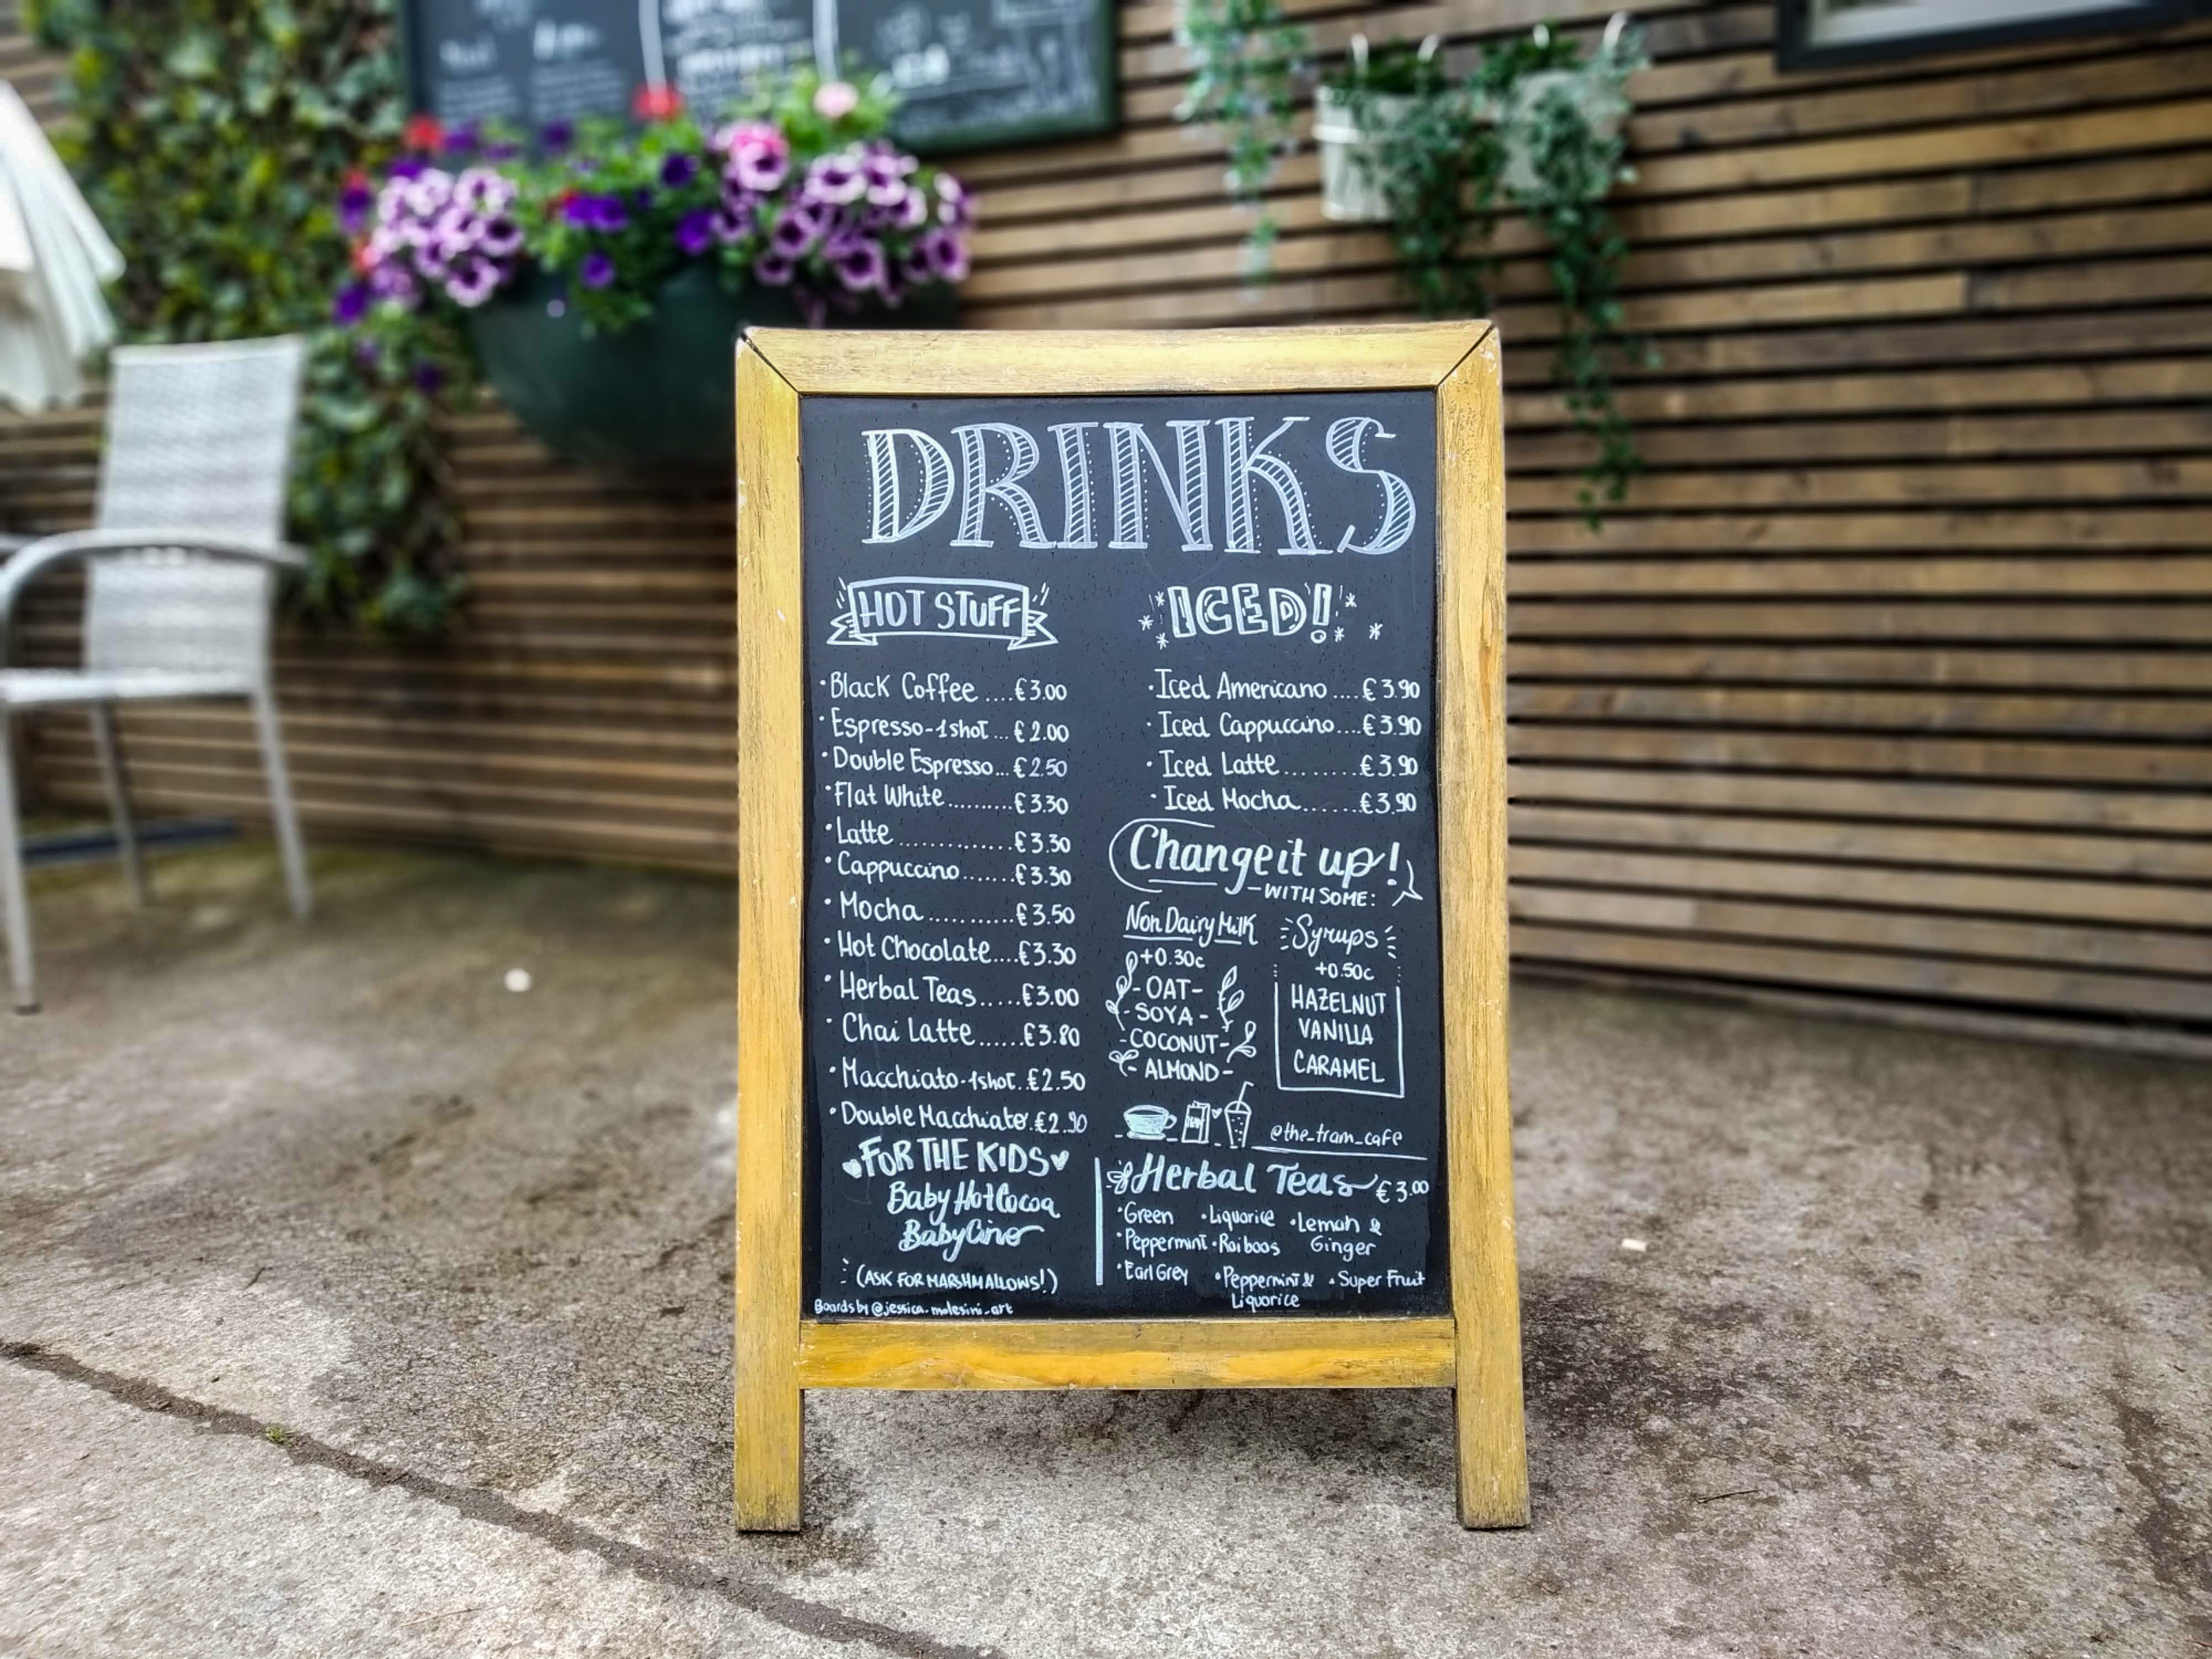 DRINKS
HOT STUFF
•Black Coffee....€3.00
•Espresso-1shot...€2.00
•Double Espresso...€2.50
•Flat White.........€3.30
•Latte..............€3.30
•Cappuccino.......€3.30
•Mocha...........€3.50
•Hot Chocolate....€3.30
•Herbal Teas.....€3.00
•Chai Latte......€3.80
•Macchiato-1shot..€2.50
•Double Macchiato.€2.90
FOR THE KIDS
Baby Hot Cocoa
BabyCino
(ASK FOR MARSHMALLOWS!)
Boards by @jessica.molesini_art
ICED!
•Iced Americano....€3.90
•Iced Cappuccino....€3.90
•Iced Latte.......€3.90
•Iced Mocha......€3.90
Change it up!
-WITH SOME:
Non Dairy Milk
+0.30c
-OAT-
-SOYA-
-COCONUT-
-ALMOND-
Syrups
+0.50c
HAZELNUT
VANILLA
CARAMEL
@the_tram_cafe
Herbal Teas €3.00
•Green •Liquorice •Lemon &
Ginger
•Peppermint •Roiboos
•Earl Grey •Peppermint & •Super Fruit
Liquorice